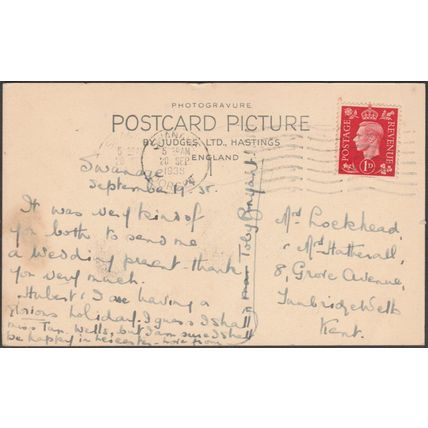 PHOTOGRAVURE
POSTCARD PICTURE
BY JUDGES, LTD., HASTINGS
ENGLAND
SWANAGE
20 SEP
POSTAGE
REVENUE
1D
Swanage
September 19th
It was very kind of
you both to send me
a wedding present - thank
you very much.
Hubert & I are having a
glorious holiday. I guess I shall
miss Tun. Wells, but I am sure I shall
be happy in Leicester - love from
Toby Bryant
Mrs Lockhead,
8, Grove Avenue,
Tunbridge Wells
Kent.